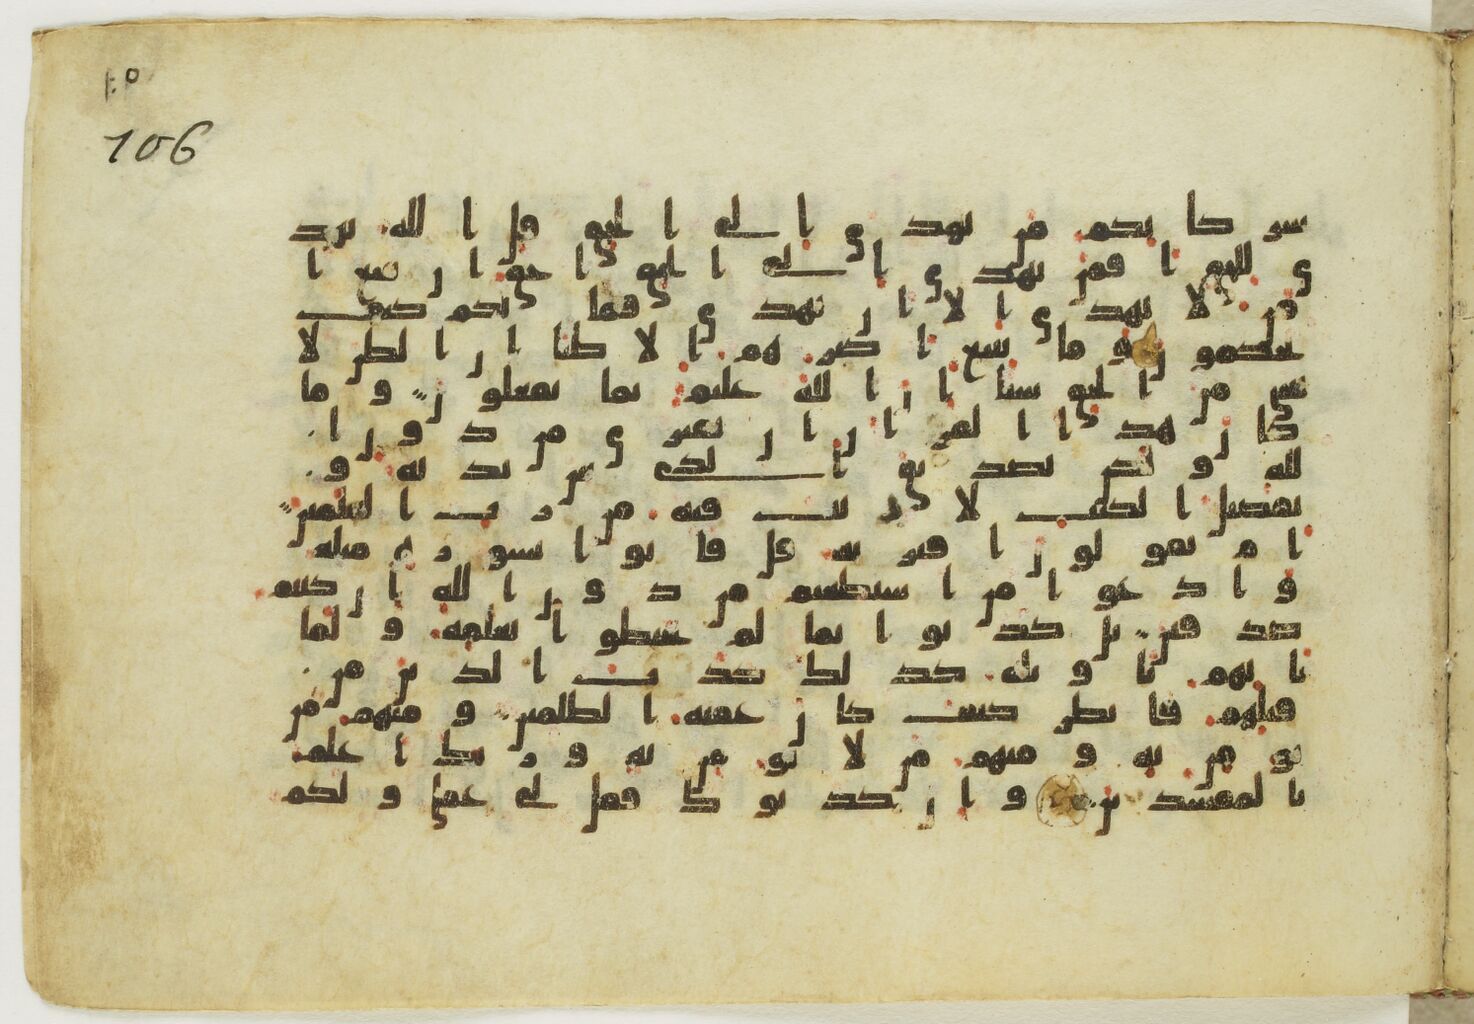 106
شركائكم من يهدي الى الحق قل الله يهد
ي للحق افمن يهدي الى الحق احق ان يتبع ا
من لا يهدي الا ان يهدى فما لكم كيف
تحكمون وما يتبع اكثرهم الا ظنا ان الظن لا
يغني من الحق شيا ان الله عليم بما يفعلون وما
كان هذا القران ان يفترى من دون ا
لله ولكن تصديق الذي بين يديه و
تفصيل الكتب لا ريب فيه من رب العلمين
ام يقولون افتريه قل فاتوا بسورة مثله
وادعوا من استطعتم من دون الله ان كنتم
صدقين بل كذبوا بما لم يحيطوا بعلمه ولما
ياتهم تاويله كذلك كذب الذين من
قبلهم فانظر كيف كان عقبة الظلمين ومنهم من
يومن به ومنهم من لا يومن به وربك اعلم
بالمفسدين وان كذبوك فقل لي عملي ولكم